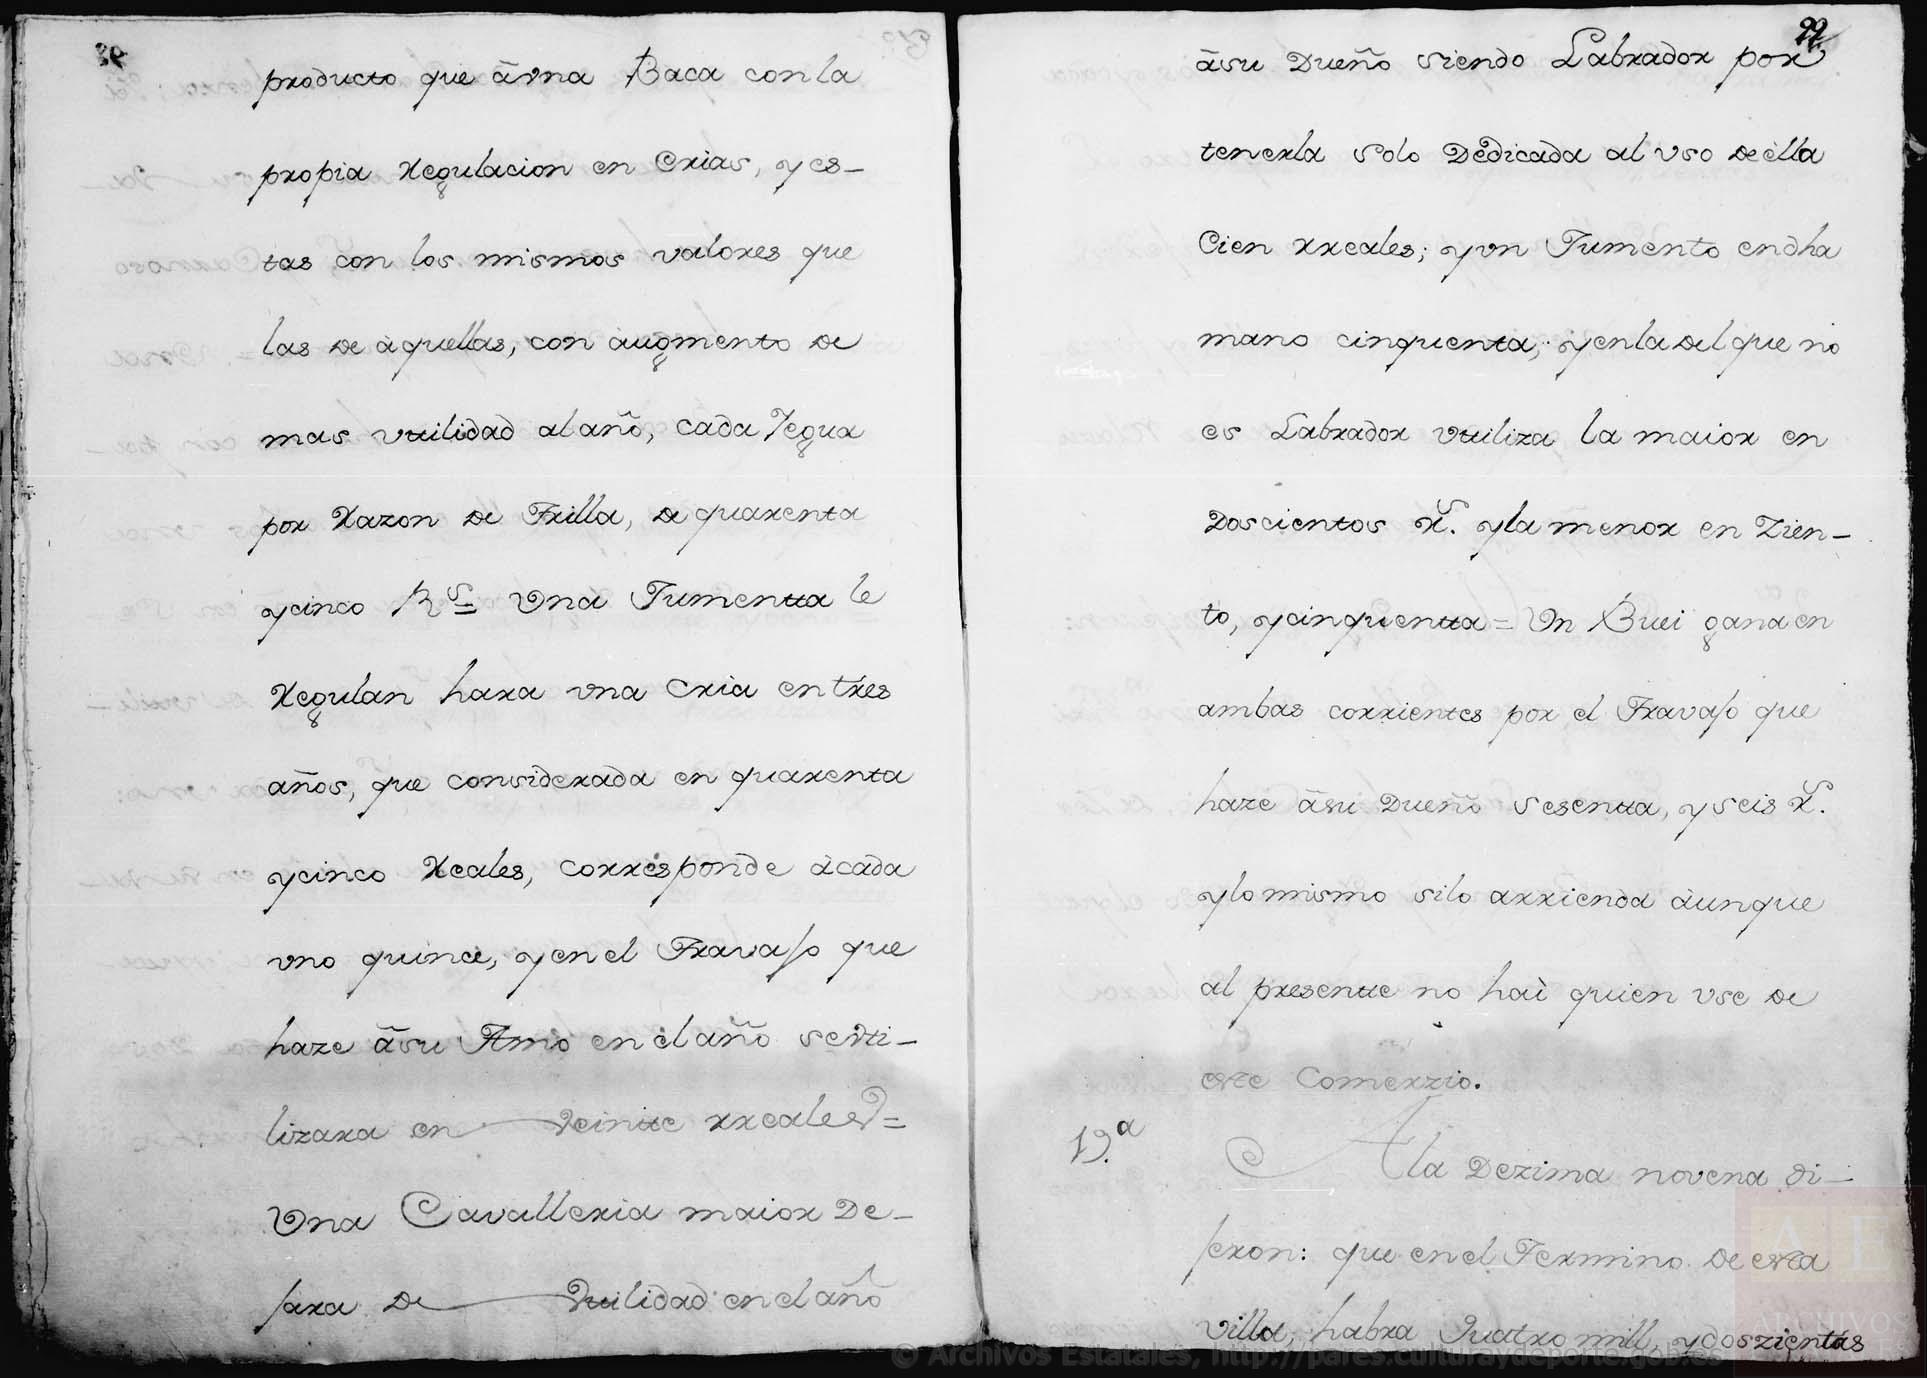 producto que â vna Baca con la
propia Regulacion en Crias, y es-
tas con los mismos valores que
las de àquellas, con àugmento de
mas vttilidad al año, cada Yegua
por Razon de Trilla, de quarenta
y cinco Rs= Vna Jumentta le
Regulan hara vna Cria en trés
años, que considerada en quarenta
y cinco Reales, correspónde àcada
vno quince, y en el Travajo que
haze âsu Amo en el año se vti-
lizara en veintte rreales=
Vna Cavalleria maior De-
jara de Vttilidad en el año
22
âsu Dueño siendo Labrador por
tenerla solo Dedicada al vso de èlla
Cien rreales; y vn Jumento en dha
mano cinquenta, y en la del que no
es Labrador vttiliza la maior en
Doscientos rs. y la menor en Zien-
to, y cinquentta = Vn Buei gana en
ambas corrientes por el Travajo que
haze âsu Dueño sesentta, y seis rs.
y lo mismo si lo arrienda àunque
al presentte no haì quien vse de
este Comerzio.
19.a
A la Dezima novena di-
jeron: que en el Termino de esta
villa, habra Quatro mill, y doszientas
© Archivos Estatales, http://pares.culturaydeporte.gob.es
A E
ARCHIVOS